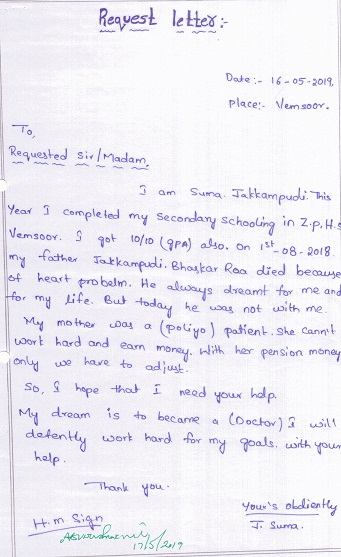 Request letter:-
Date:- 16-05-2019,
Place:- Vemsoor.
To,
Requested Sir/Madam,
I am Suma. Jakkampudi. This
Year I completed my Secondary Schooling in Z.p.H.s
Vemsoor. I got 10/10 (GPA) also. on 1st-08-2018.
my father Jakkampudi. Bhaskar Rao died because
of heart probelm. He always dreamt for me and
for my life. But today he was not with me.
My mother was a (poliyo) patient. she cann't
work hard and earn money. With her pension money
only we have to adjust.
So, I hope that I need your help.
My dream is to became a (Doctor) I will
defently work hard for my goals. with your
help.
Thank you.
H.m Sign
17/5/2019
Your's obdiently
J. Suma.